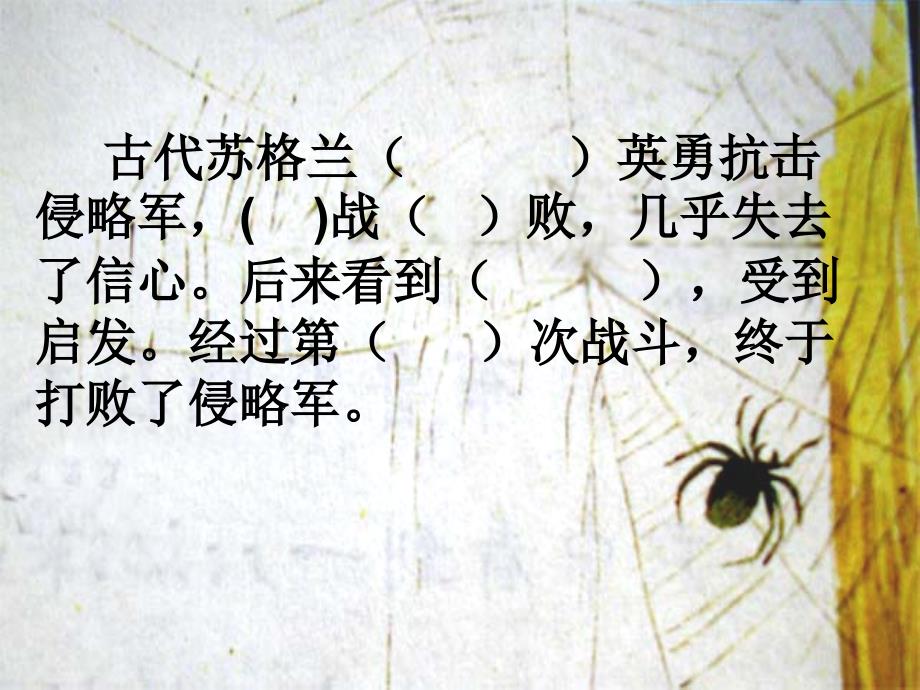 古代苏格兰（　　　）英勇抗击
侵略军，(　)战（　）败，几乎失去
了信心。后来看到（　　　），受到
启发。经过第（　　）次战斗，终于
打败了侵略军。